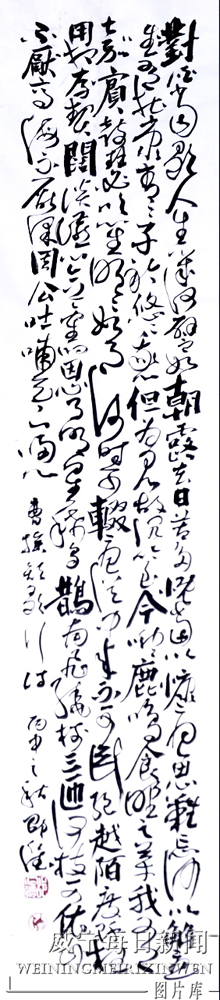 對酒當歌人生幾何譬如朝露去日苦多慨當以慷憂思難忘何以解憂
唯有杜康青青子衿悠悠我心但為君故沉吟至今呦呦鹿鳴食野之苹我有
嘉賓鼓瑟吹笙明明如月何時可輟憂從中來不可斷絕越陌度阡枉
用相存契闊談讌心念舊恩月明星稀烏鵲南飛繞樹三匝何枝可依山
不厭高海不厭深周公吐哺天下歸心
曹操短歌行詩 丙申之秋
威宁每日新闻
WEININGMEIRIXINWEN
图片库